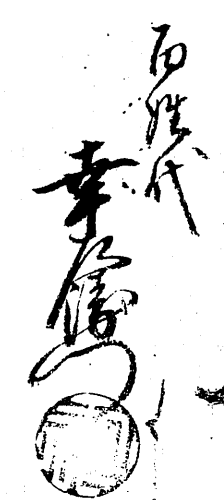 百姓代
幸右衛門